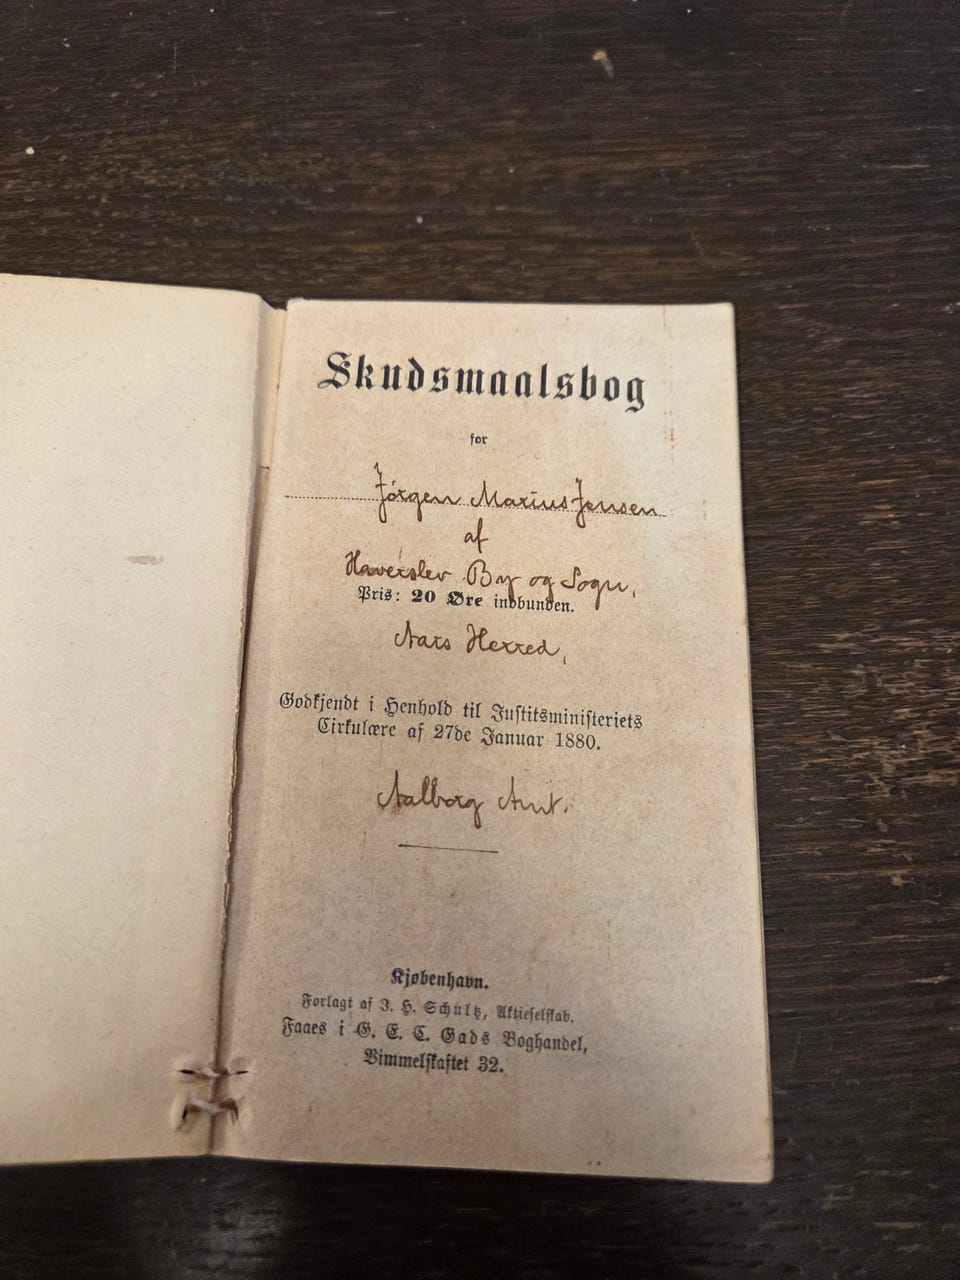 Skudsmaalsbog
for
Jörgen Marius Jensen
af
Haverslev By og Sogn,
Pris: 20 Øre indbunden.
Aars Herred,
Godkjendt i Henhold til Justitsministeriets
Cirkulære af 27de Januar 1880.
Aalborg Amt.
Kjøbenhavn.
Forlagt af J. H. Schultz, Aktieselskab.
Faaes i G. E. C. Gads Boghandel,
Vimmelskaftet 32.